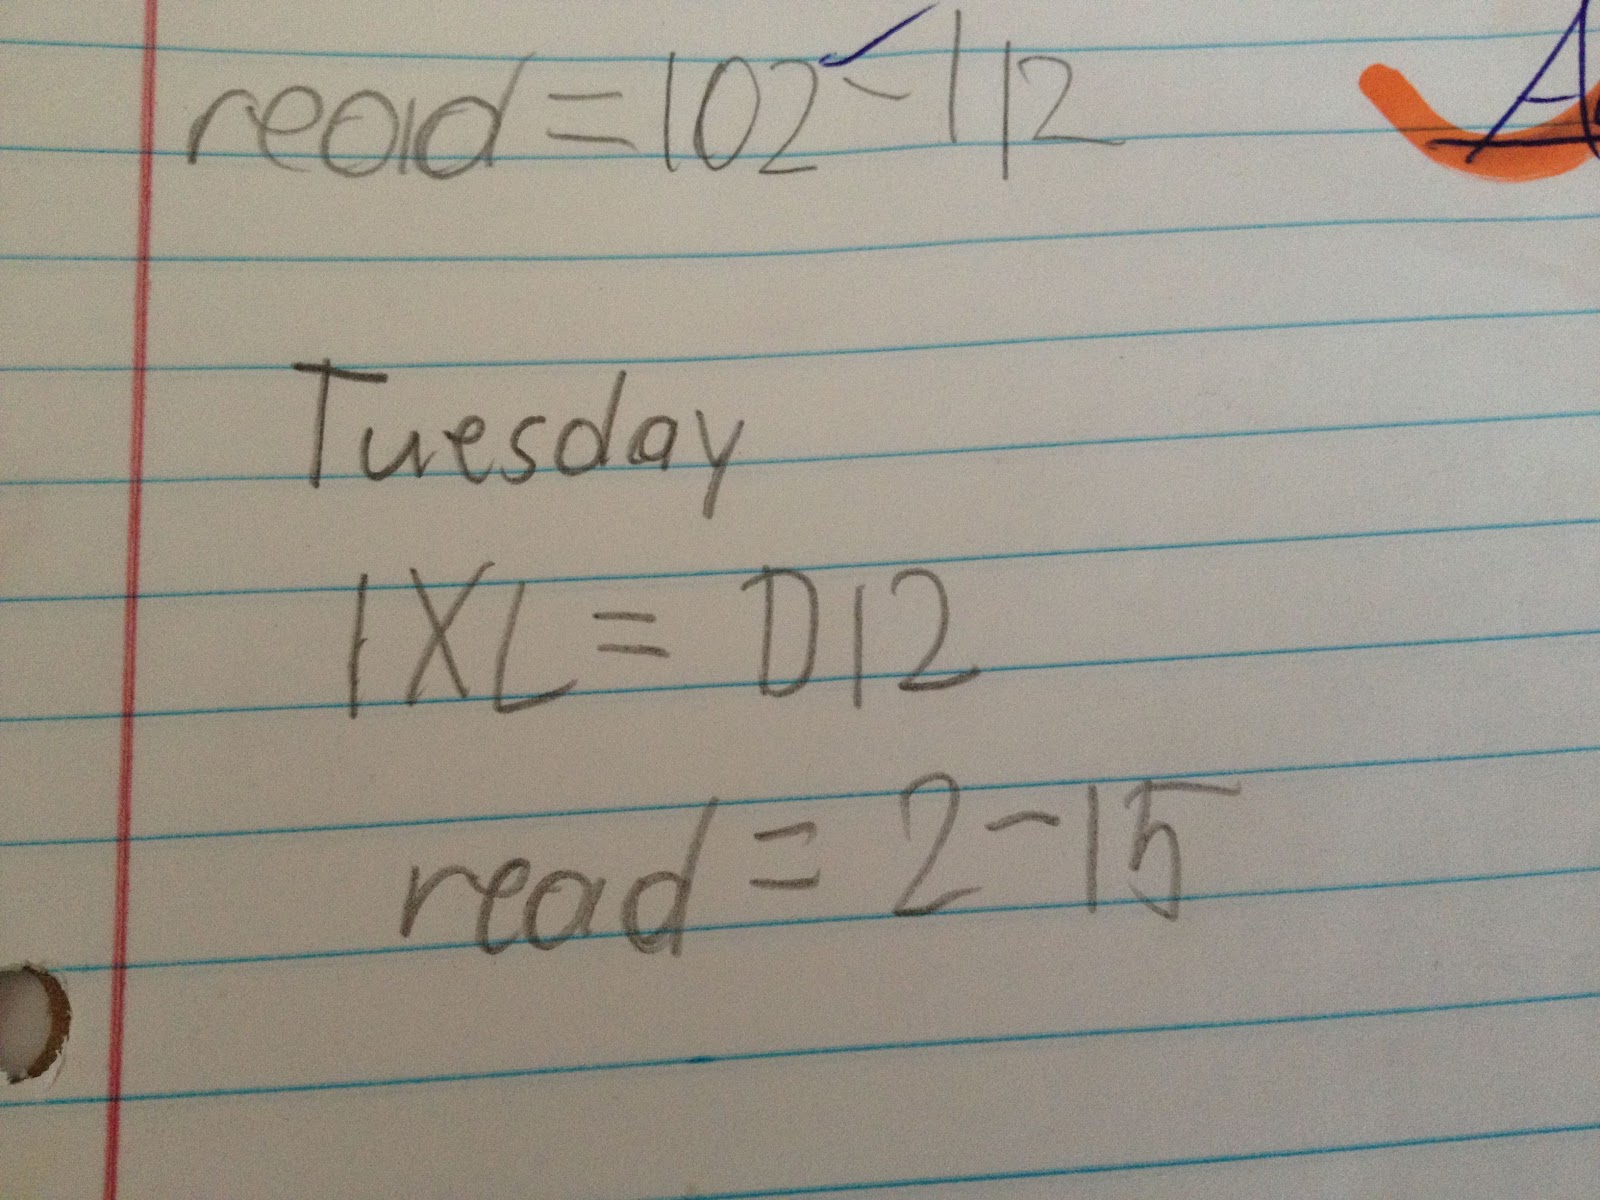 read = 102 - 112
Tuesday
IXL = D12
read = 2 - 15